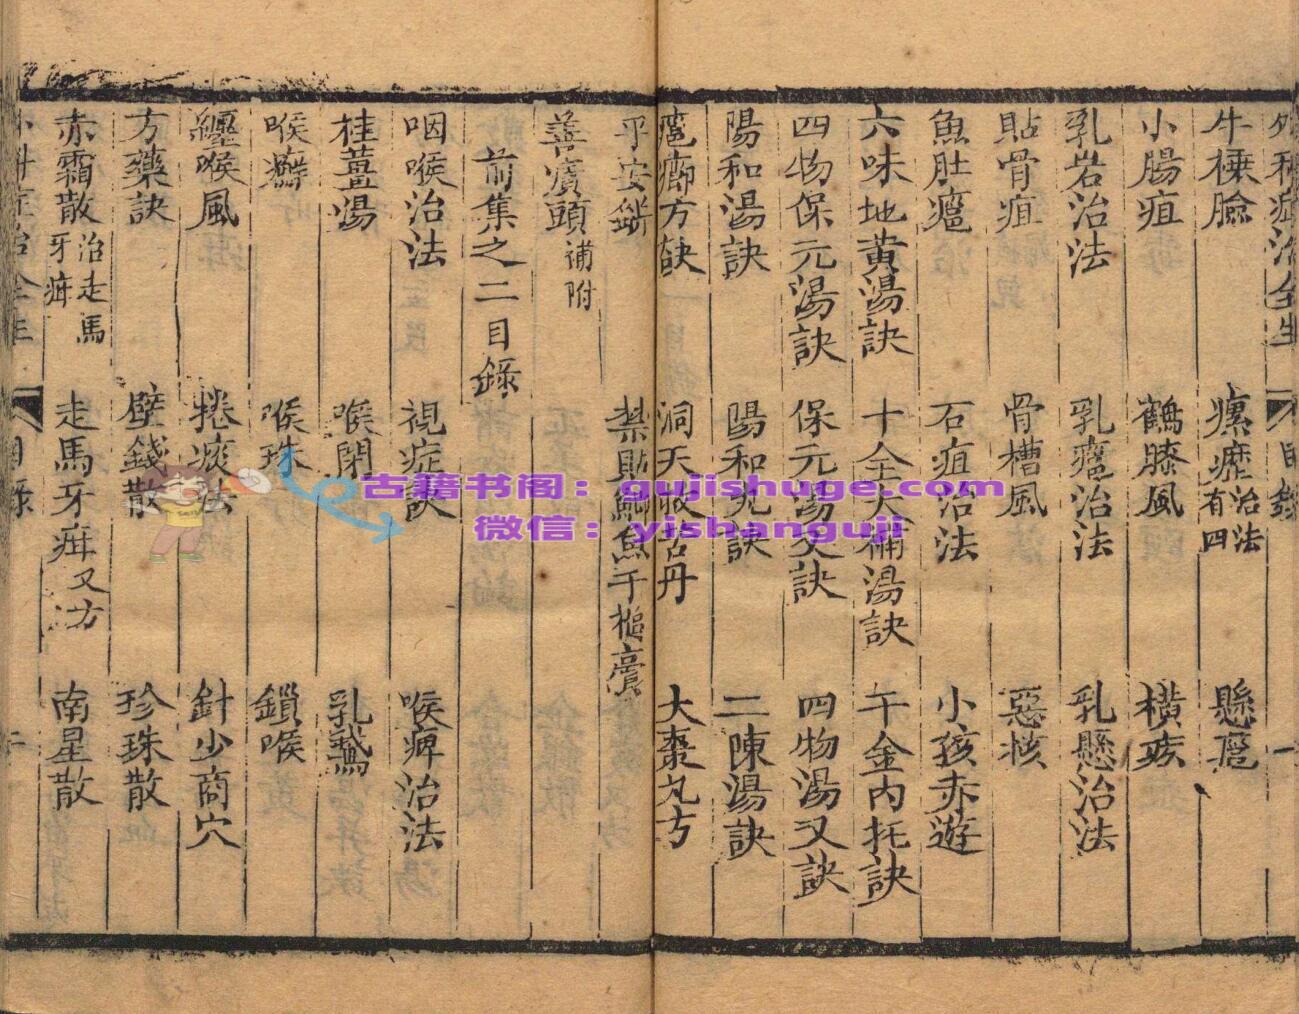 牛㯶臉 瘰癧治法有四 懸𤺺
小腸疽 鶴膝風 橫痃
乳岩治法 乳癰治法 乳懸治法
貼骨疽 骨槽風 惡核
魚肚癰 石疽治法 小孩赤遊
六味地黃湯訣 十全大補湯訣 千金內托訣
四物保元湯訣 保元湯又訣 四物湯又訣
陽和湯訣 陽和丸訣 二陳湯訣
方 洞天 丹 大棗丸方
平安餅 魚千槌膏
頭補附
前集之二目錄
咽喉治法 視症訣 喉痺治法
桂薑湯 喉閉 乳鵞
喉癬 喉珠 鎖喉
纏喉風 捲痰法 針少商穴
方藥訣 壁錢散 珍珠散
赤霜散治走馬牙疳 走馬牙疳又方 南星散
目錄
古籍书阁：gujishuge.com
微信：yishanguji